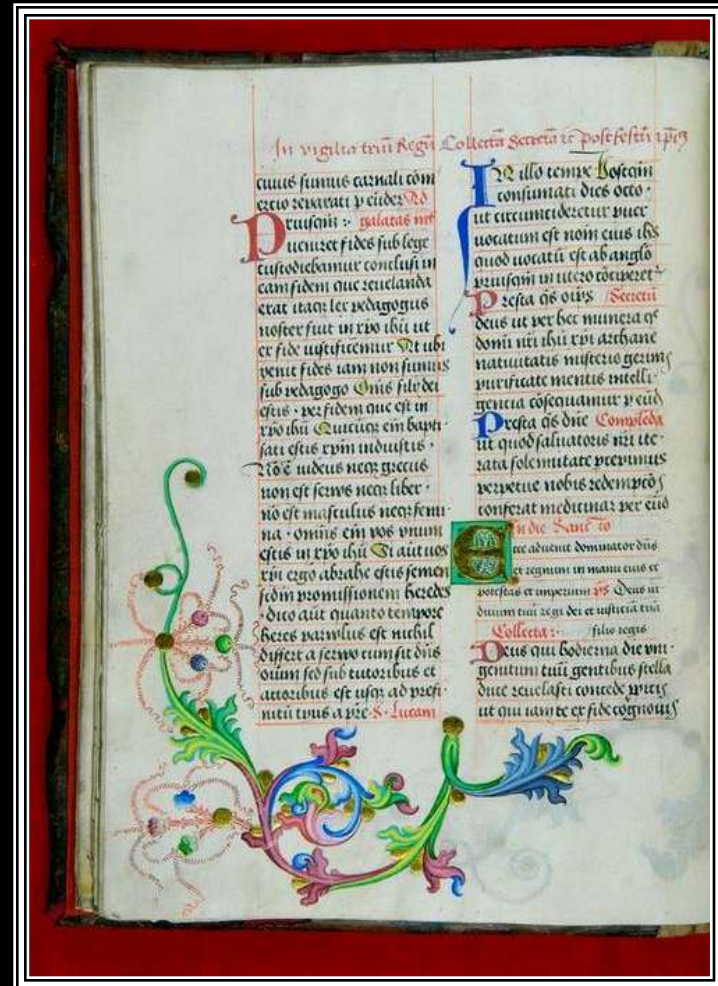 In vigilia triū Regū Collecta Secreta et post festū
cuius sumus carnali com
ercio reparati p eūdez Ad
Priusqm :· galatas
ueniret fides sub lege
custodiebamur conclusi in
eam fidem que reuelanda
erat itaqz lex pedagogus
noster fuit in xpo ihū ut
ex fide iustificemur At ubi
venit fides iam non sumus
sub pedagogo Om̄s filii dei
estis · per fidem que est in
xpo ihū Quicūqz em̄ bapti
sati estis xpm induistis ·
Nō ē iudeus neqz grecus
non est seruus neqz liber ·
nō est masculus neqz femi
na · omnes em̄ vos vnum
estis in xpo ihū Si aūt uos
xpi ergo abrahe estis semen
scdm promissionem heredes
· dico aūt quanto tempore
heres paruulus est nichil
differt a seruo cum sit dn̄s
oium sed sub tutoribus et
actoribus est usqz ad prefi
nitū tpus a pre · S · Lucam
IN illo tempe Postqm
consumati dies octo ·
ut circumcideretur puer
uocatum est nom eius ihs
quod uocatū est ab anglo
priusqm in utero cōciperet
Presta qs oip̄s Secretū
deus ut per hec munera qs
domī nr̄i ihū xpi archane
natiuitatis misteria gerim9
purificate mentis intelli ·
gencia cōsequamur p eūd
Presta qs dn̄e Complēda
ut quod saluatoris nr̄i ite ·
rata solemnitate
perpetue nobis redempcōis
conferat medicinam per eūd
In die Sanc to
Ecce aduenit dominator dn̄s
et regnum in manu eius et
potestas et imperium ps Deus iu
dicium tuū regi dei et iusticiā tuā
Collecta :· filio regis
Deus qui hodierna die vni ·
genitum tuū gentibus stella
duce reuelasti concede
ut qui iam te ex fide cognouim9